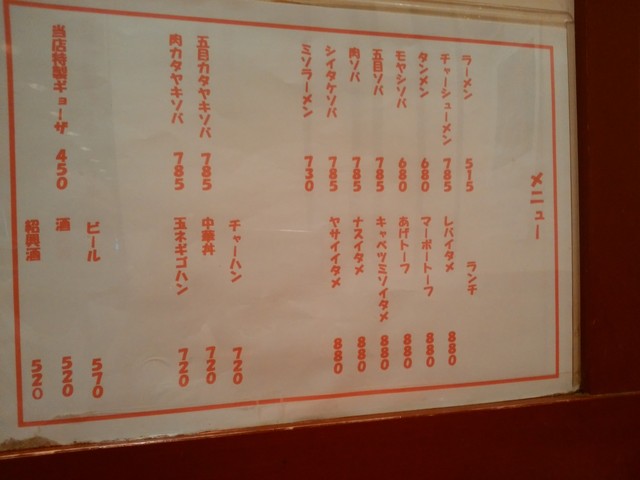 メニュー
ラーメン 515
チャーシューメン 785
タンメン 680
モヤシソバ 680
五目ソバ 785
肉ソバ 785
シイタケソバ 785
ミソラーメン 730
五目カタヤキソバ 785
肉カタヤキソバ 785
当店特製ギョーザ 450
ランチ
レバイタメ 880
マーボートーフ 880
あげトーフ 880
キャベツミソイタメ 880
ナスイタメ 880
ヤサイイタメ 880
チャーハン 720
中華丼 720
玉ネギゴハン 720
ビール 570
酒 520
紹興酒 520